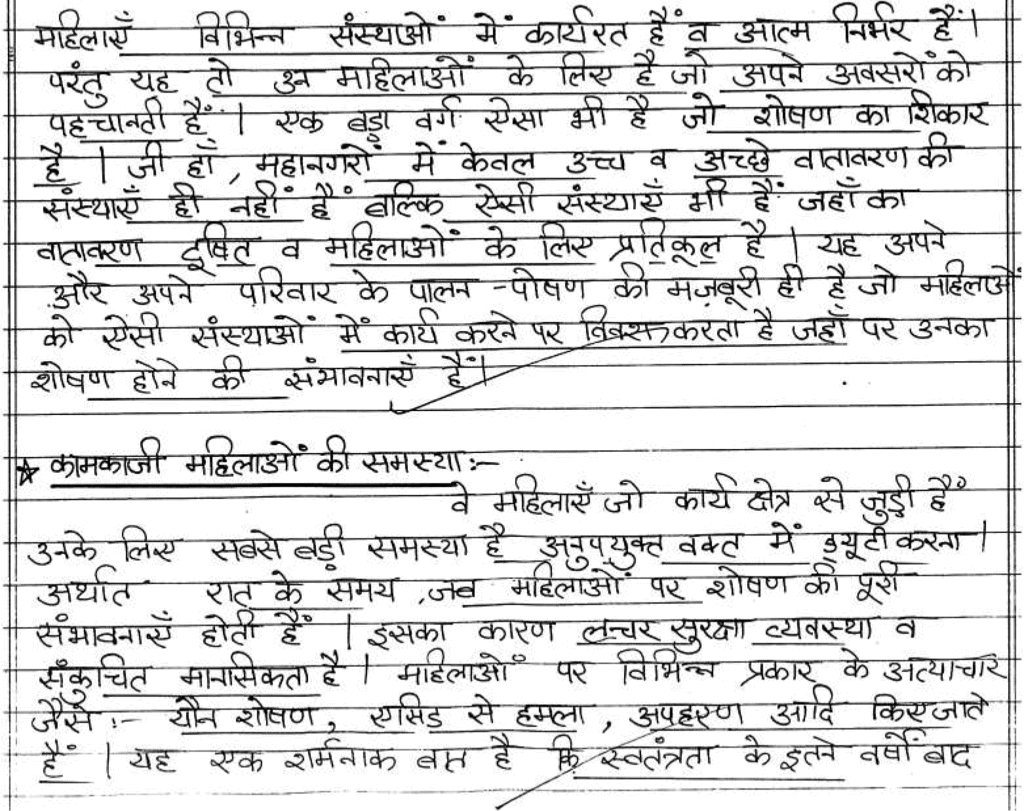 महिलाएँ विभिन्न संस्थाओं में कार्यरत हैं व आत्म निर्भर हैं।
परंतु यह तो उन महिलाओं के लिए है जो अपने अवसरों को
पहचानती हैं। एक बड़ा वर्ग ऐसा भी है जो शोषण का शिकार
है। जी हाँ, महानगरों में केवल उच्च व अच्छे वातावरण की
संस्थाएँ ही नहीं हैं बल्कि ऐसी संस्थाएँ भी हैं जहाँ का
वातावरण दूषित व महिलाओं के लिए प्रतिकूल है। यह अपने
और अपने परिवार के पालन-पोषण की मज़बूरी ही है जो महिलाओं
को ऐसी संस्थाओं में कार्य करने पर विवश करता है जहाँ पर उनका
शोषण होने की संभावनाएँ हैं।
★ कामकाजी महिलाओं की समस्या:-
वे महिलाएँ जो कार्य क्षेत्र से जुड़ी हैं
उनके लिए सबसे बड़ी समस्या है अनुपयुक्त वक्त में ड्यूटी करना।
अर्थात रात के समय, जब महिलाओं पर शोषण की पूरी
संभावनाएँ होती हैं। इसका कारण लच्चर सुरक्षा व्यवस्था व
संकुचित मानसिकता है। महिलाओं पर विभिन्न प्रकार के अत्याचार
जैसे:- यौन शोषण, एसिड से हमला, अपहरण आदि किए जाते
हैं। यह एक शर्मनाक बात है कि स्वतंत्रता के इतने वर्षों बाद